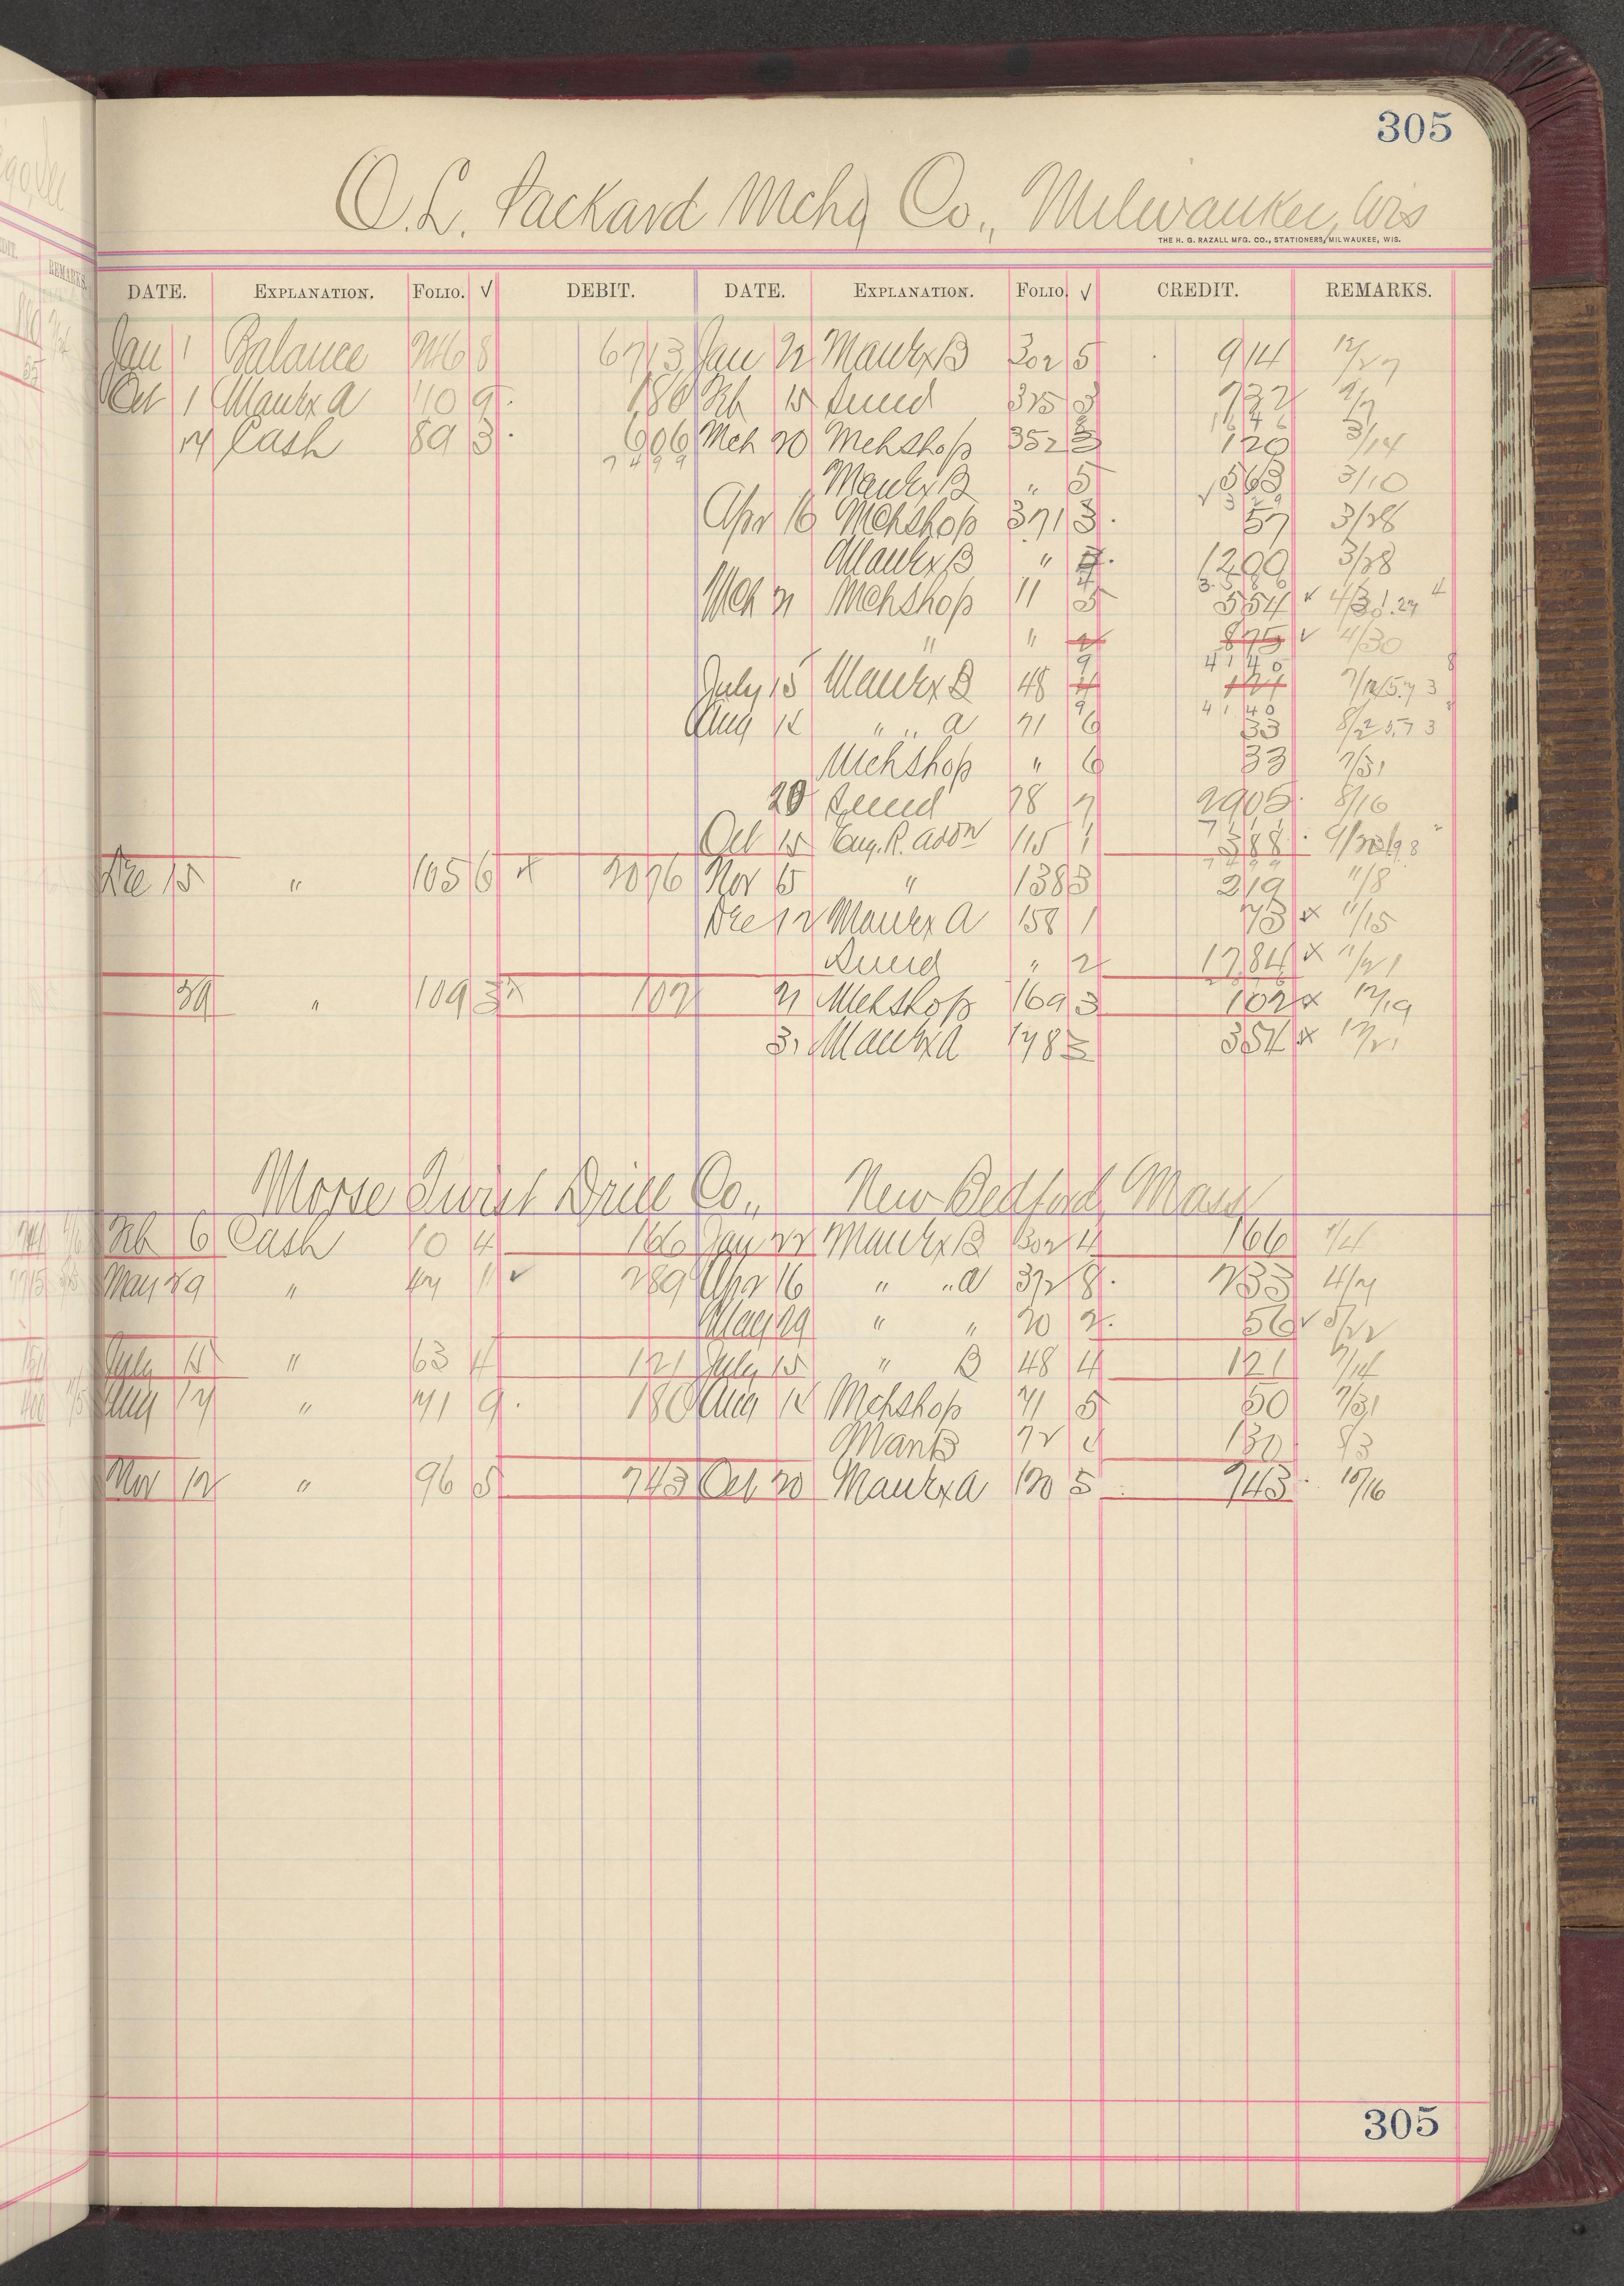 305
O. L. Packard Mchy Co., Milwaukee, Wis
THE H. G. RAZALL MFG. CO., STATIONERS, MILWAUKEE, WIS.
DATE. EXPLANATION. FOLIO. √ DEBIT. DATE. EXPLANATION. FOLIO. √ CREDIT. REMARKS.
Jan 1 Balance 246 8 6713 Jan 22 Manfx B 302 5 914 12/27
Oct 1 Manfx A 110 9 180 Feb 15 325 3 732 2/7
1646
17 Cash 89 3 606 Mch 20 Mchshop 352 120 3/14
7499
Manfx B " 5 563 3/10
Apr 16 Mchshop 371 3 57 3/28
Manfx B " 1200 3/28
3586
Mch 21 Mchshop 11 5 554 √
" " 875 √ 4/30
4140
July 15 Manfx B 48 4 121
4140
Aug 14 " " A 71 6 33
Mchshop " 6 33 7/31
20 78 7 2905 8/16
Oct 15 Eng. R. Addn 115 1 388
Dec 15 " 105 6 x 2076 Nov 15 " 138 3 219 11/8
Dec 12 Manfx A 158 1 73 x 11/15
" 2 1784 x 11/21
29 " 109 3 x 102 21 Mchshop 169 3 102 x 12/19
31 Manfx A 178 3 354 x 12/21
Morse Twist Drill Co., New Bedford, Mass
Feb 6 Cash 10 4 166 Jan 22 Manfx B 302 4 166 1/4
May 29 " 47 1 √ 289 Apr 16 " " A 372 8 233 4/7
May 29 " " 20 2 56 √ 5/22
July 15 " 63 4 121 July 15 " B 48 4 121 7/14
Aug 17 " 71 9 180 Aug 14 Mchshop 71 5 50 7/31
Man B 72 130 8/3
Nov 12 " 96 5 743 Oct 20 Manfx A 120 5 743 10/16
305